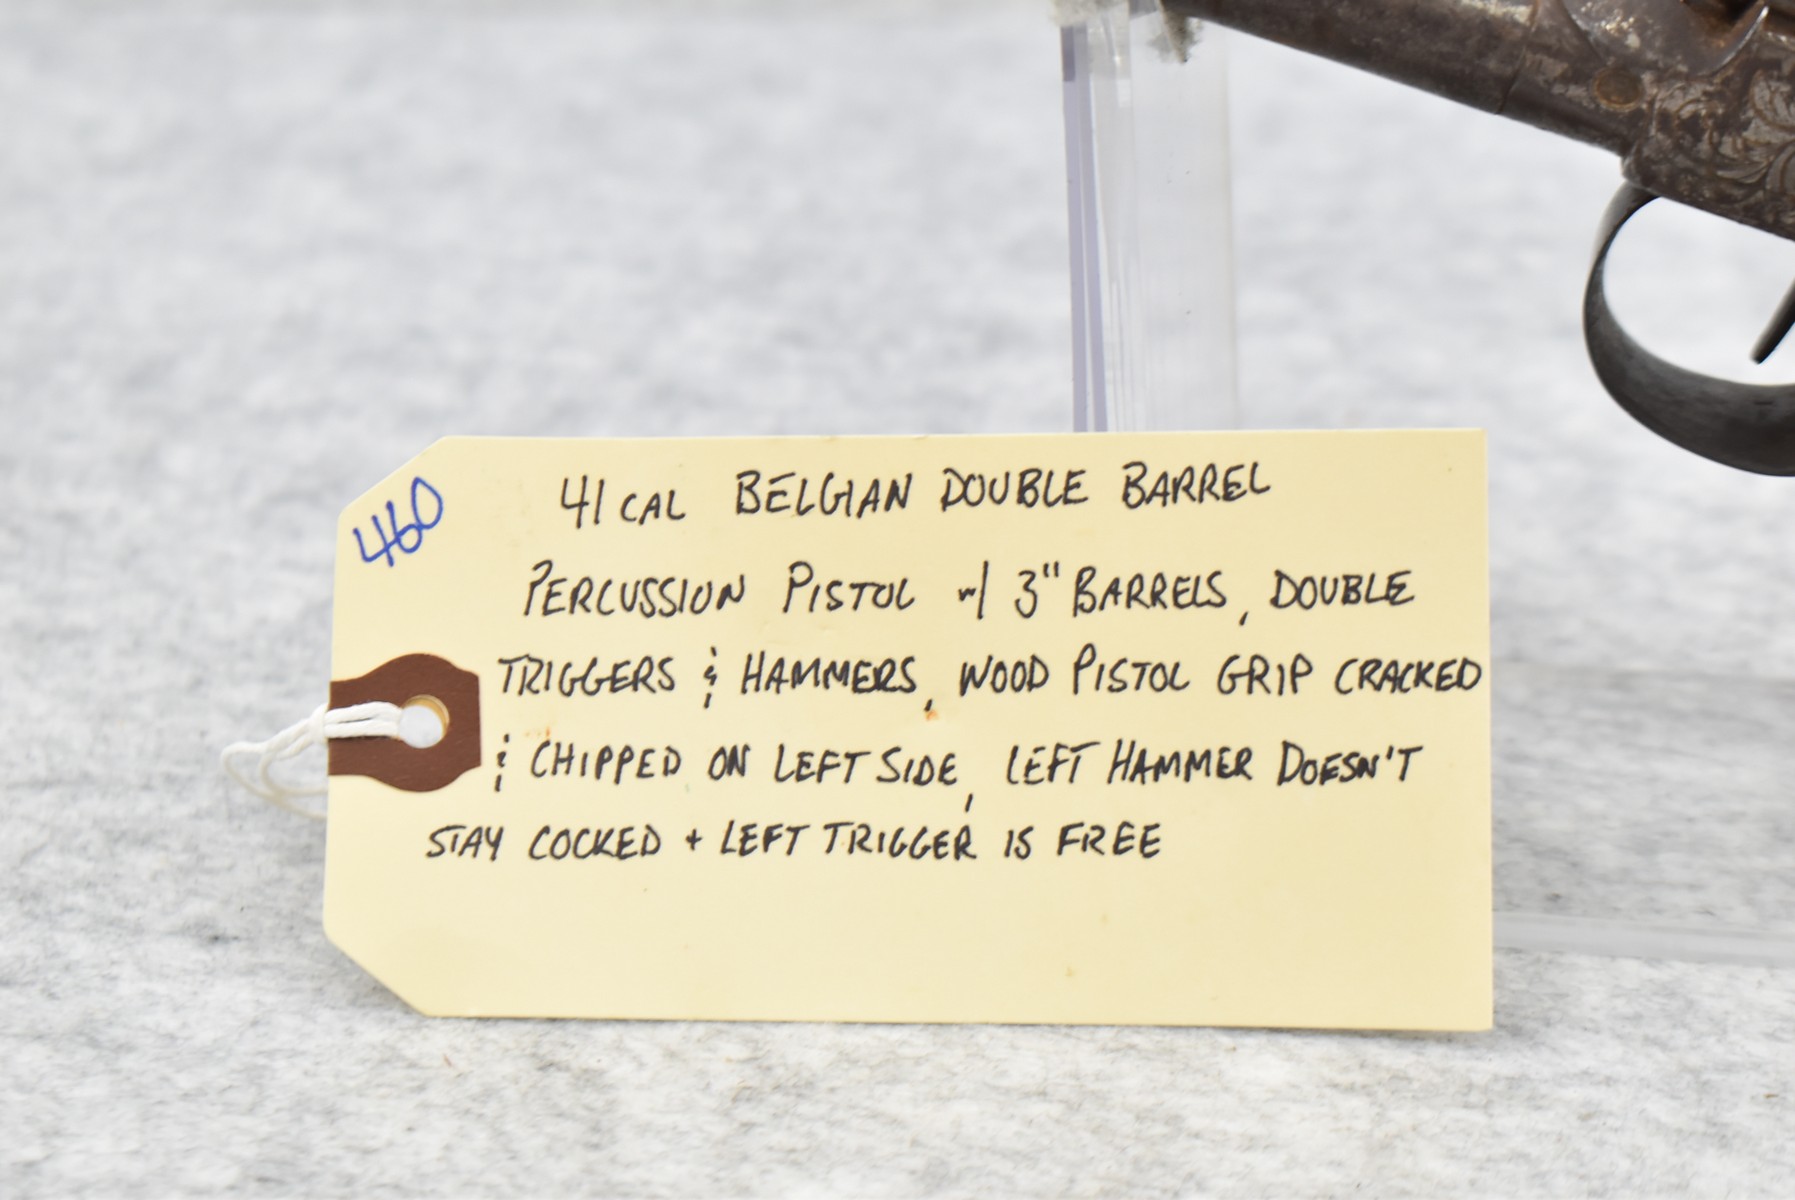 460
41 CAL BELGIAN DOUBLE BARREL
PERCUSSION PISTOL w/ 3" BARRELS, DOUBLE
TRIGGERS & HAMMERS, WOOD PISTOL GRIP CRACKED
& CHIPPED ON LEFT SIDE, LEFT HAMMER DOESN'T
STAY COCKED + LEFT TRIGGER IS FREE